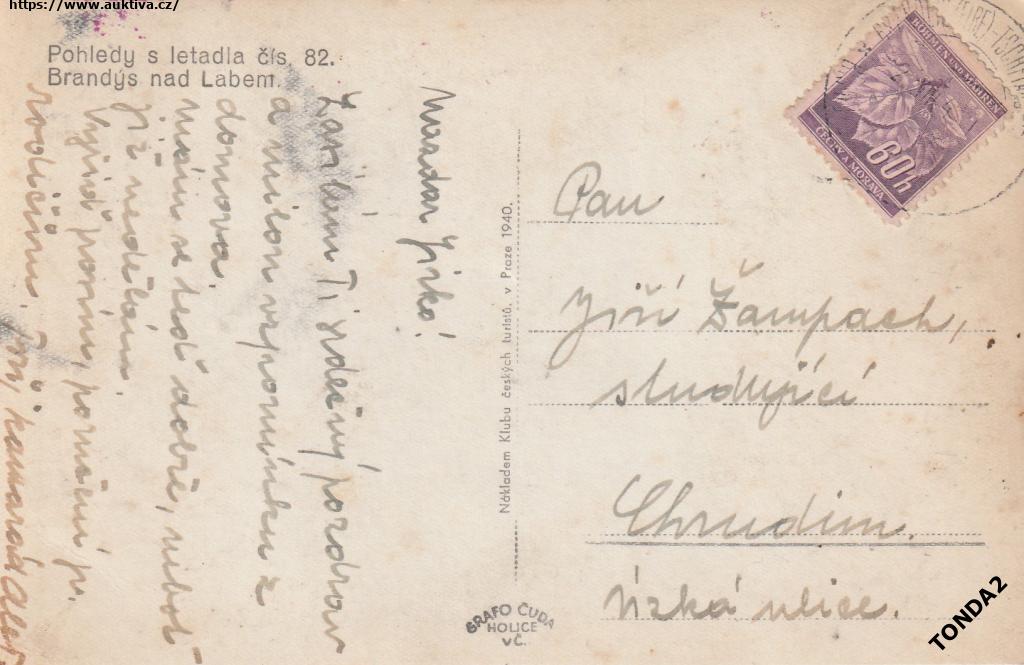 https://www.auktiva.cz/
Pohledy s letadla čís. 82.
Brandýs nad Labem.
Nazdar Jirko!
Zasílám Ti srdečný pozdrav
a milou vzpomínku z
domova.
mám se teď dobře, neboť
již nedělám.
Vyřiď prosím, poručení p.
rodičům. Tvůj kamarád
Nákladem Klubu českých turistů, v Praze 1940.
GRAFO ČUDA
HOLICE
VČ.
BÖHMEN UND MÄHREN
60h
ČECHY A MORAVA
Pan
Jiří Žampach,
studující
Chrudim.
Úzká ulice.
TONDA2